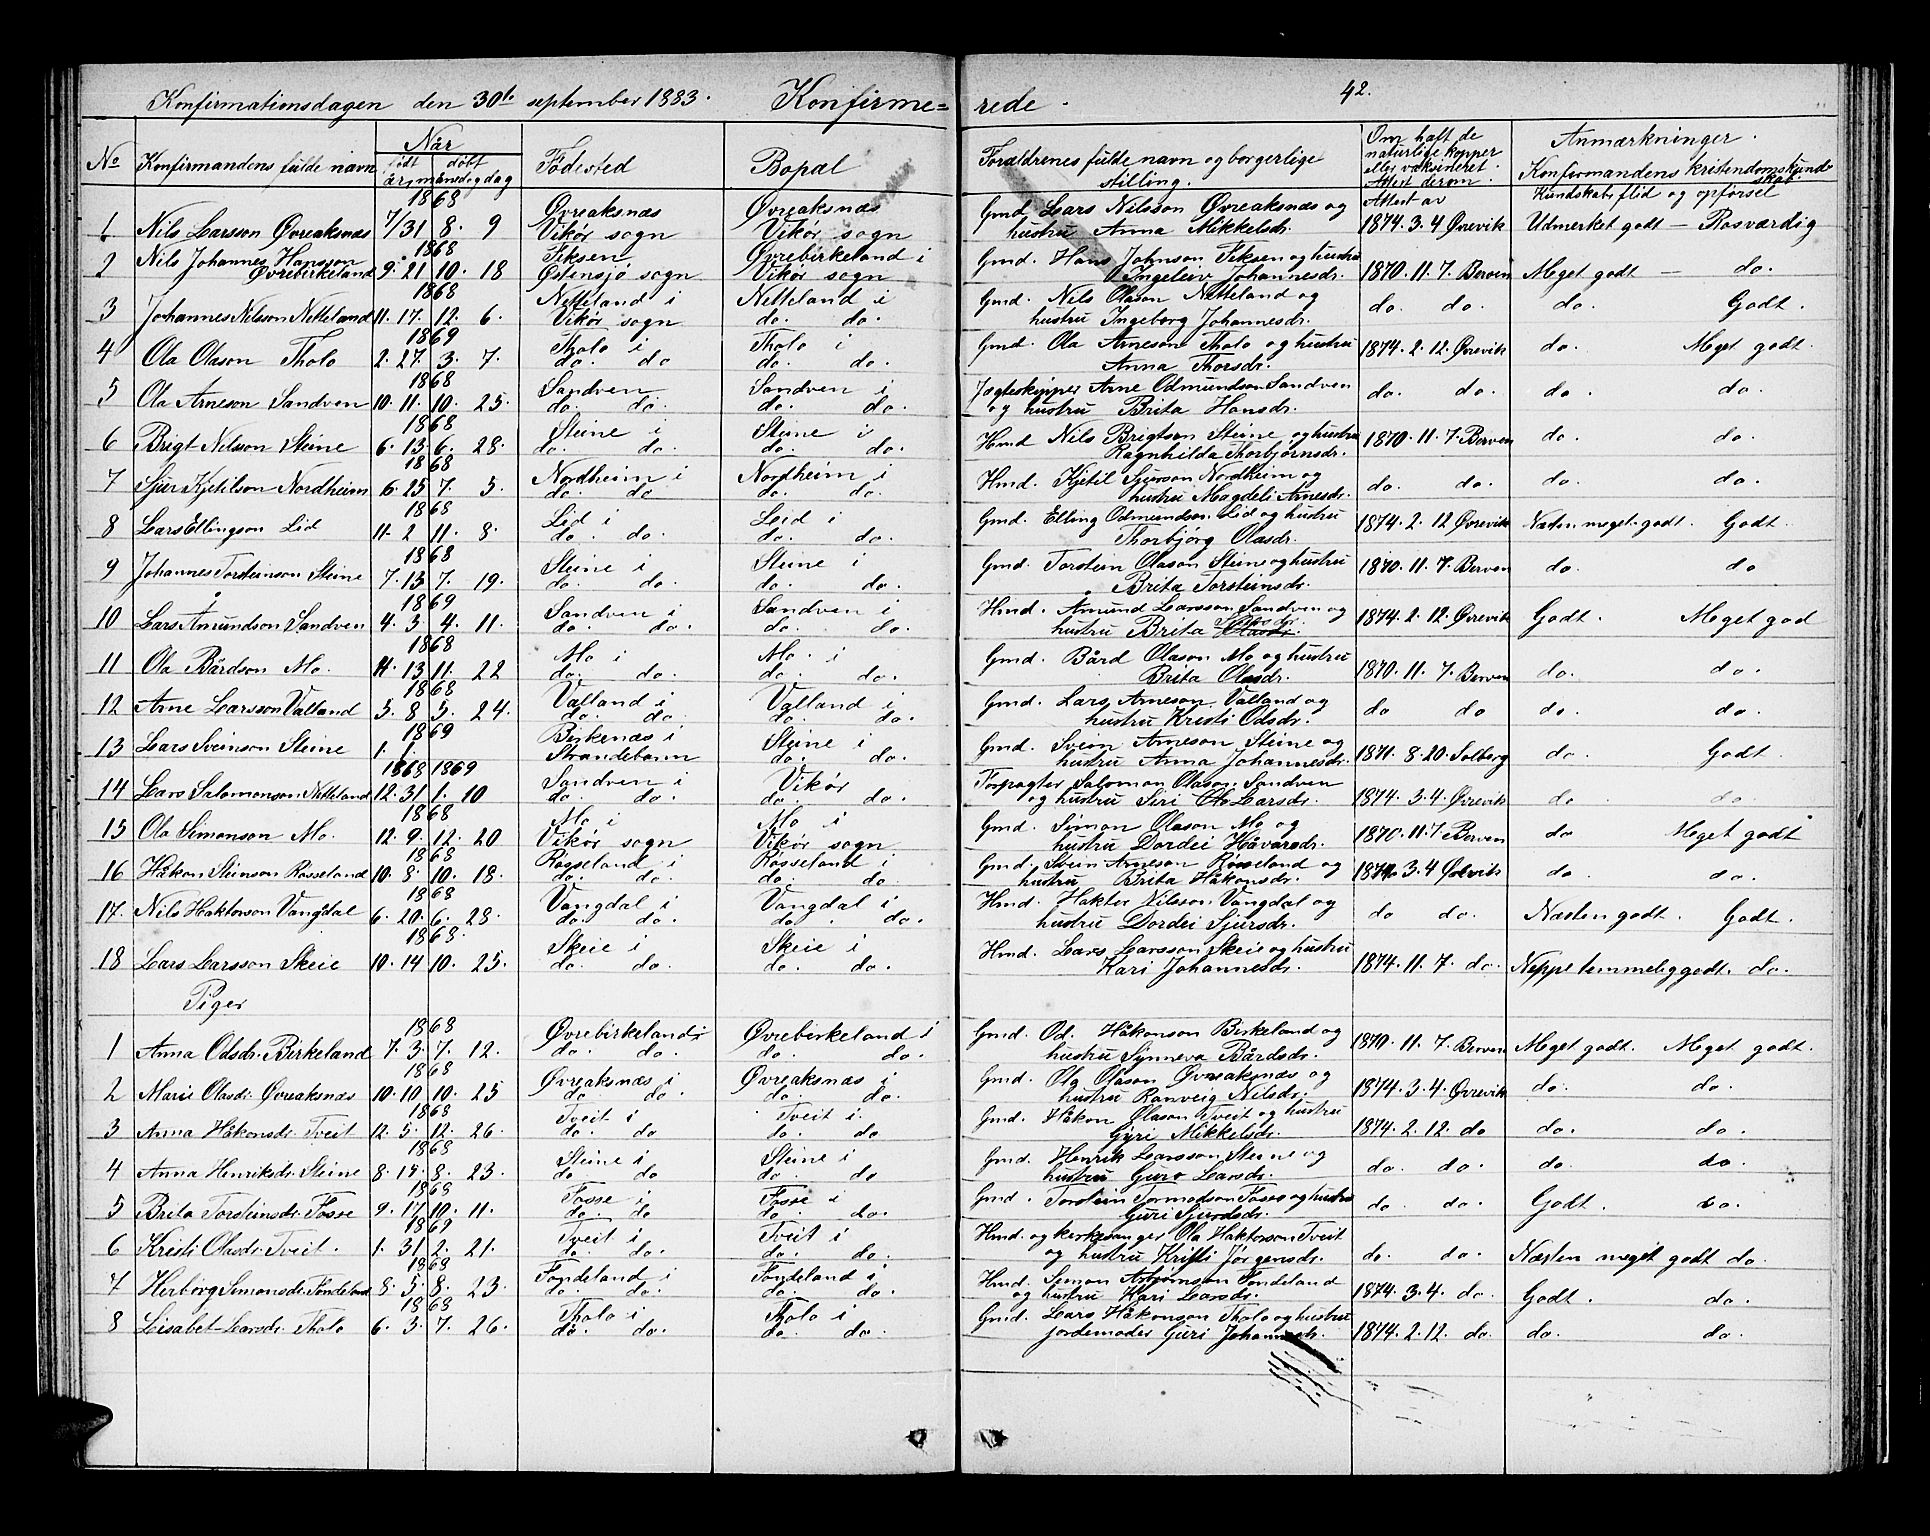 Konfirmationsdagen den 30te september 1883. Konfirme= rede. 42.
No Konfirmandens fulde navn Når Fødested Bopæl Forældrenes fulde navn og borgerlige stilling. Om haft de naturlige kopper eller vaksineret. Attest derom. Anmærkninger.
født døbt Konfirmandens kristendomskundskab.
år, månedsdag dag Attest av Kundskab, flid og opførsel
1868 Øvreaksnæs Øvreaksnæs Gmd. Lars Nilsson Øvreaksnæs og
1 Nils Larsson Øvreaksnæs 7/31 8. 9 Vikør sogn Vikør sogn hustru Anna Mikkelsdr. 1874. 3. 4 Øvrevik Udmerket godt — Rosværdig
Nils Johannes Hansson 1868 Fiksen Øvrebirkeland i Gmd. Hans Johnson Fiksen og hustru
2 Øvrebirkeland 9. 21 10. 18 Østensjø sogn Vikør sogn Ingeleiv Johannesdr. 1870. 11. 7. Berven Meget godt — do.
1868 Netteland i Netteland i Gmd. Nils Olason Netteland og
3 Johannes Nilsson Netteland 11. 17. 12. 6. Vikør sogn do. do. hustru Ingeborg Johannesdr. do. do. do. Godt.
1869 Tholo i Tholo i Gmd. Ola Arneson Tholo og hustru
4 Ola Olason Tholo 2. 27 3. 7. do. do do. do. Anna Thorsdr. 1874. 2. 12. Øvrevik do. Meget godt.
1868 Sandven Sandven i Jagteskipper Arne Odmundson Sandven
5 Ola Arneson Sandven 10. 11. 10. 25. do. do. do. do. og hustru Brita Hansdr. do. do. do. do
1868 Steine i Steine i Hmd Nils Brigtson Steine og hustru
6 Brigt Nilsson Steine 6. 13. 6. 28. do. do. do. do. Ragnhilda Thorbjørnsdr. 1870. 11. 7. Berven do. do.
1868 Nordheim i Nordheim i Hmd. Kjetil Sjurson Nordheim og
7 Sjur Kjetilson Nordheim 6. 25 7. 5. do. do. do. do. hustru Magdeli Arnesdr. do. do. do. do.
1868 Lid i Leid i Gmd. Elling Odmundson Lid og hustru
8 Lars Ellingson Lid 11. 2 11. 8. do. do. do. do. Thorbjorg Olasdr. 1874. 2. 12 Øvrevik Næsten meget godt. Godt.
1868 Steine i Steine i Gmd. Torstein Olason Stein og hustru
9 Johannes Torsteinson Steine 7. 13 7. 19. do. do. do. do. Brita Torsteinsdr. 1870. 11. 7. Berven do. do
1869 Sandven i Sandven i Hmd. Åmund Larsson Sandven og
10 Lars Åmundson Sandven 4. 3. 4. 11. do. do. do. do. hustru Brita Olasdr. 1874. 2. 12. Øvrevik Godt. Meget god
1868 Mo i Mo. i Gmd. Bård Olason Mo og hustru
11 Ola Bårdson Mo. 11. 13 11. 22 do. do. do. do. Brita Olasdr. 1870. 11. 7. Berven do. do.
1868 Valland i Valland i Gmd. Lars Arneson Valland og
12 Arne Larsson Valland 5. 8 5. 24. do. do. do. do. hustru Kristi Odsdr. do do do. do.
1869 Birkenæs i Steine i Gmd. Svein Arneson Steine og
13 Lars Sveinson Steine 1. 1. Strandebarm do. do. hustru Anna Johannesdr. 1871. 8. 20. Solberg do. Godt.
1868 1869 Sandven i Vikør Forpagter Salomon Olason Sandven
14 Lars Salomonson Netteland 12. 31 1. 10 do. do. do. do. og hustru Siri Larsdr. 1874. 3. 4. Øvrevik do do
1868 Mo i Mo i Gmd. Simon Olason Mo og
15 Ola Simonson Mo. 12. 9. 12. 20 Vikør sogn Vikør sogn hustru Dordei Håvarsdr. 1870. 11. 7 Berven do Meget godt
1868 Rosseland i Rosseland i Gmd. Stein Arneson Rosseland og
16 Håkon Steinson Rosseland 10. 8. 10. 18. do. do. do. do. hustru Brita Håkonsdr. 1874. 3. 4 Øvrevik do. do.
1868 Vangdal i Vangdal i Hmd. Haktor Nilsson Vangdal og
17. Nils Haktorson Vangdal 6. 20. 6. 28. do. do. do. do. hustru Dordei Sjursdr. do do. Næsten godt. Godt.
1868. Skeie i Skeie i Hmd. Lars Larsson Skeie og hustru
18 Lars Larsson Skeie 10. 14 10. 25. do. do. do. do. Kari Johannesdr. 1874. 11. 7. do. Neppe temmelig godt. do.
Piger
1868 Øvrebirkeland i Øvrebirkeland i Gmd. Od. Håkonson Birkeland og
1 Anna Odsdr. Birkeland 7. 3. 7. 12. do. do. do. do. hustru Synneva Bårdsdr. 1870. 11. 7. Berven Meget godt. Meget godt.
1868 Øvreaksnæs i Øvreaksnæs i Gmd. Ola Olason Øvreaksnæs og
2 Marie Olasdr. Øvreaksnæs 10. 10 10. 25 do. do. do. do. hustru Ranveig Nilsdr. 1874. 3. 4. Øvrevik do. do.
1868 Tveit i Tveit i Gmd. Håkon Olason Tveit og hustru
3 Anna Håkonsdr. Tveit 12. 5. 12. 26. do. do do. do Gyri Mikkelsdr. 1874. 2. 12. do do. do.
1868 Steine i Steine i Gmd. Henrik Larsson Steine og
4 Anna Henriksdr. Steine 8. 15. 8. 23. do. do do. do hustru Guro Larsdr. do. do. do. do.
1868 Fosse i Fosse i Gmd. Torstein Tormodson Fosse og hustru
5 Brita Torsteinsdr. Fosse 9. 17 10. 11. do. do do. do. Guri Sjursdr. do do. Godt. do.
1869 Tveit i Tveit i Hmd. og kirkesanger Ola Haktorson Tveit
6 Kristi Olasdr. Tveit. 1. 31 2. 21. do. do do. do. og hustru Kristi Jørgensdr. do. do. Næsten meget godt do.
1868 Tondeland i Tondeland i Hmd. Simon Asbjørnson Tondeland
7 Herborg Simonsdr. Tondeland 8. 5. 8. 23. do. do. do. do. og hustru Kari Larsdr. 1874. 3. 4. do. Godt. do.
1868 Tholo i Tholo i Gmd. Lars Håkonson Tholo og hustru
8 Lisabet Larsdr. Tholo 6. 3. 7. 26. do. do. do. do. jordemoder Guri Johannesdr. 1874. 2. 12. do. do. do.